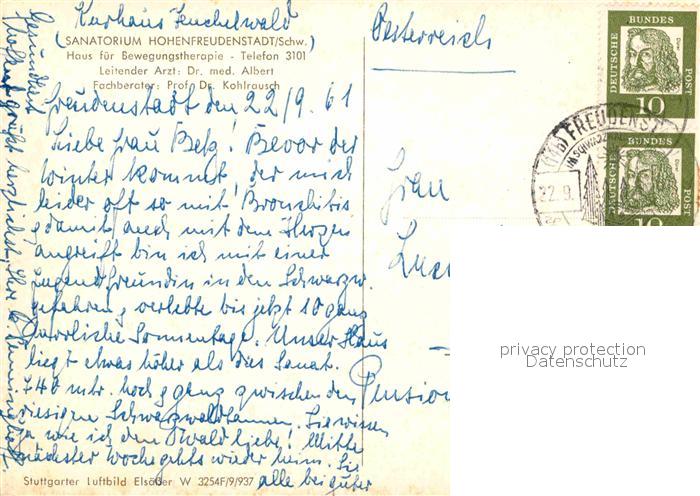 Kurhaus Teuchelwald
(SANATORIUM HOHENFREUDENSTADT/Schw.)
Haus für Bewegungstherapie - Telefon 3101
Leitender Arzt: Dr. med. Albert
Fachberater: Prof. Dr. Kohlrausch
Freudenstadt den 22/9. 61
Liebe Frau Betz! Bevor der
Winter kommt, der mich
leider oft so mit Bronchitis
& damit auch mit dem Herzen
angreift bin ich mit einer
Jugendfreundin in den Schwarzw.
gefahren & verlebte bis jetzt 10 ganz
herrliche Sonnentage. Unser Haus
liegt etwas höher als das Sanat.
740 mtr. hoch & ganz zwischen den
riesigen Schwarzwaldtannen. Sie wissen
ja wie ich den Wald liebe! Mitte
nächster Woche gehts wieder heim. Sie
alle bei guter
Gesundheit
hoffend grüßt herzlichst, Ihre
Stuttgarter Luftbild Elsäßer W 3254F/9/937
Oesterreich
Frau
Pension
DEUTSCHE
BUNDES
POST
10
DEUTSCHE
BUNDES
POST
10
FREUDENST
IM SCHWARZW
22.9.
privacy protection
Datenschutz